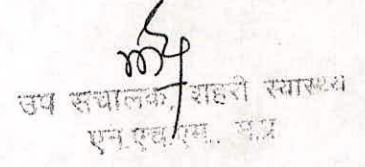 उप संचालक, शहरी स्वास्थ्य
एन.एच.एम., म.प्र